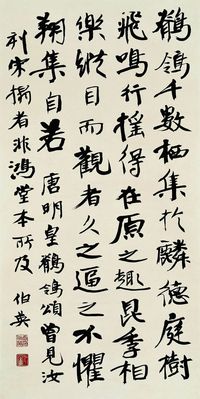 鶺鴒千數栖集於麟德庭樹
飛鳴行搖得在原之趣昆季相
樂縱目而觀者久之逼之不懼
翔集自若 唐明皇鶺鴒頌曾見汝
刻宋搨者非鴻堂本所及 伯英